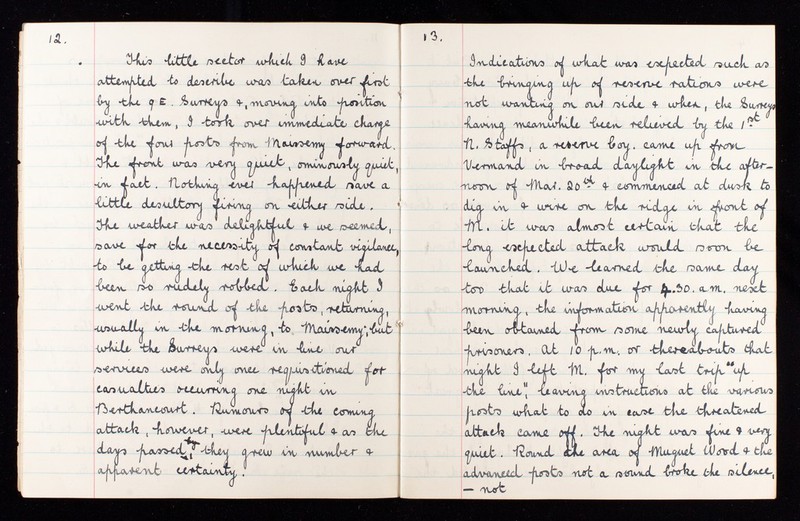 12.
This little sector which I have
attempted to describe was taken over first
by the 9 E. Surreys &, moving into position
with them, I took over immediate charge
of the four posts from Maissemy forward.
The front was very quiet, ominously quiet,
in fact. Nothing ever happened save a
little desultory firing on either side.
The weather was delightful & we seemed,
save for the necessity of constant vigilance,
to be getting the rest of which we had
been so rudely robbed. Each night I
went the round of the posts, returning,
usually in the morning, to Maissemy; but
while the Surreys were in line our
services were only once requisitioned for
casualties occurring one night in
Berthancourt. Rumours of the coming
attack, however, were plentiful & as the
days passed by they grew in number &
apparent certainty.
13.
Indications of what was expected such as
the bringing up of reserve rations were
not wanting on our side & when, the Surreys
having meanwhile been relieved by the 1st
N. Staffs, a reserve Coy. came up from
Vermand in broad daylight in the after-
noon of Mar. 20th & commenced at dusk to
dig in & wire on the ridge in front of
M. it was almost certain that the
long expected attack would soon be
launched. We learned the same day
too that it was due for 4.30. a.m. next
morning, the information apparently having
been obtained from some newly captured
prisoners. At 10 p.m. or thereabouts that
night I left M. for my last trip "up
the line", leaving instructions at the various
posts what to do in case the threatened
attack came off. The night was fine & very
quiet. Round the area of Muguet Wood & the
advanced posts not a sound broke the silence,
— not